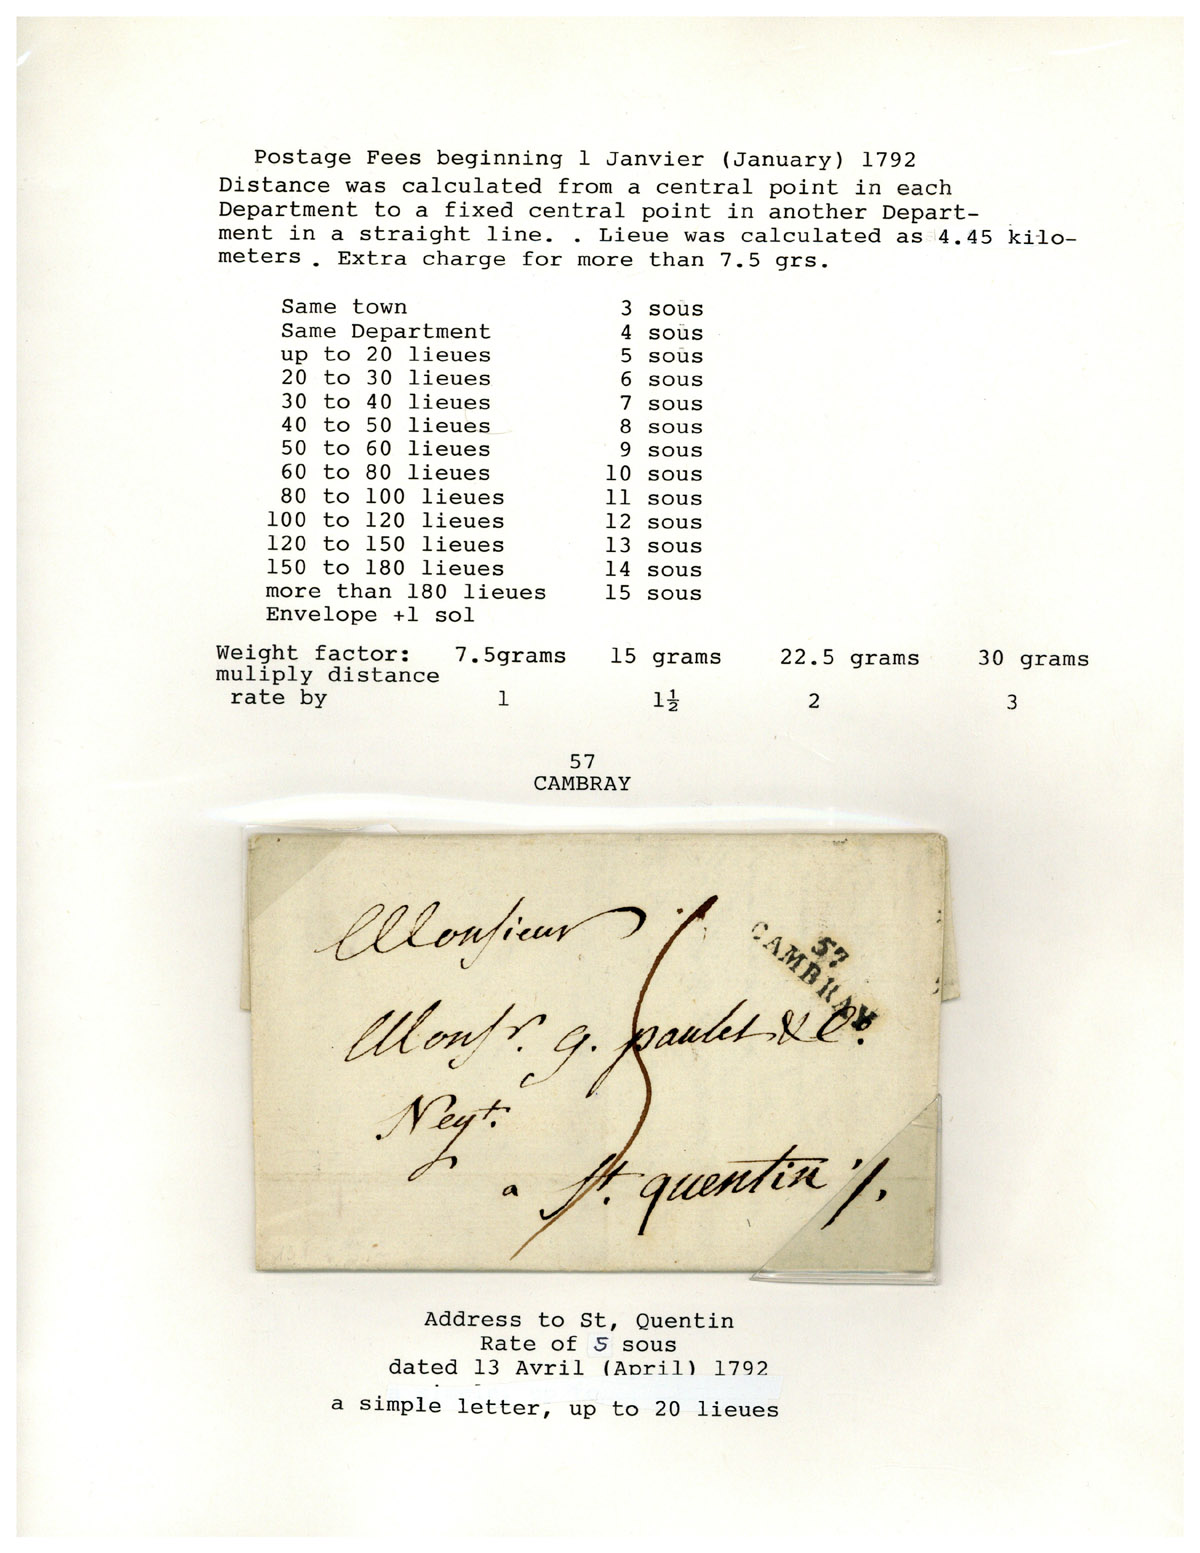 Postage Fees beginning 1 Janvier (January) 1792
Distance was calculated from a central point in each
Department to a fixed central point in another Depart-
ment in a straight line. . Lieue was calculated as 4.45 kilo-
meters . Extra charge for more than 7.5 grs.
Same town 3 sous
Same Department 4 sous
up to 20 lieues 5 sous
20 to 30 lieues 6 sous
30 to 40 lieues 7 sous
40 to 50 lieues 8 sous
50 to 60 lieues 9 sous
60 to 80 lieues 10 sous
80 to 100 lieues 11 sous
100 to 120 lieues 12 sous
120 to 150 lieues 13 sous
150 to 180 lieues 14 sous
more than 180 lieues 15 sous
Envelope +1 sol
Weight factor: 7.5grams 15 grams 22.5 grams 30 grams
muliply distance
rate by 1 1½ 2 3
57
CAMBRAY
57
CAMBRAY
Monsieur
Monsr. g. paulet & C.
Negt.
a St. quentin
5
Address to St, Quentin
Rate of 5 sous
dated 13 Avril (April) 1792
a simple letter, up to 20 lieues